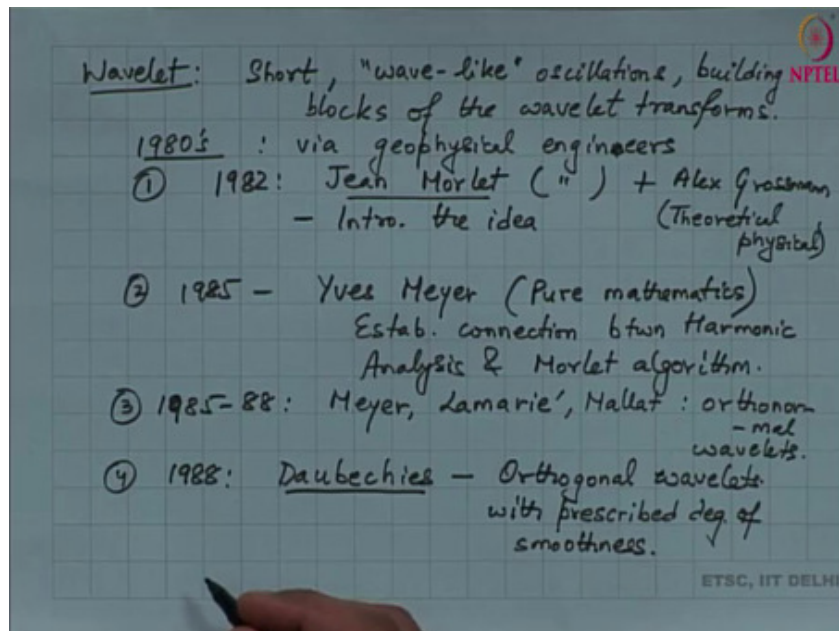 Wavelet: Short, "wave-like" oscillations, building
NPTEL
blocks of the wavelet transforms.
1980's : via geophysical engineers
① 1982: Jean Morlet (") + Alex Grossmann
- Intro. the idea (Theoretical
physical)
② 1985 - Yves Meyer (Pure mathematics)
Estab. connection btwn Harmonic
Analysis & Morlet algorithm.
③ 1985-88: Meyer, Lamarié, Mallat : orthonor-
-mal
wavelets.
④ 1988: Daubechies - Orthogonal wavelets
with prescribed deg. of
smoothness.
ETSC, IIT DELHI